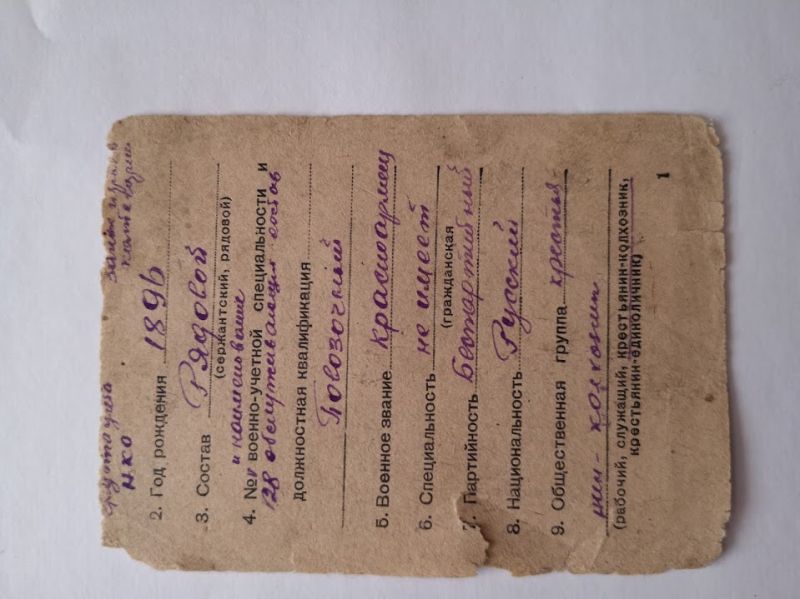 НКО
2. Год рождения 1896
3. Состав Рядовой
(сержантский, рядовой)
и наименование
4. № военно-учетной специальности и
128 обслуживающий состав
должностная квалификация
Повозочный
5. Военное звание красноармеец
6. Специальность не имеет
(гражданская
7. Партийность Беспартийный
8. Национальность Русский
9. Общественная группа крестья-
нин-колхозник
(рабочий, служащий, крестьянин-колхозник,
крестьянин-единоличник)
1